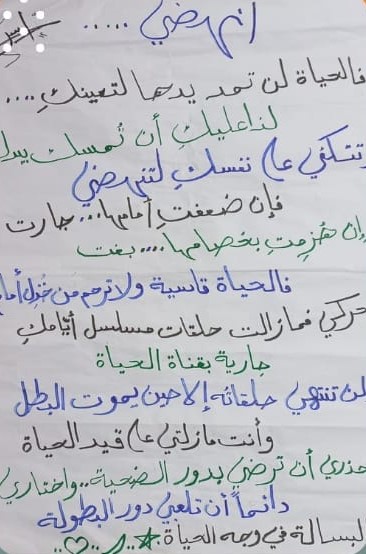 انهضي .....
فالحياة لن تمد يدها لتعينكِ....
لذا عليكِ أن تُمسك يدا
تتكئي على نفسكِ لتنهضي
فإن ضعفتِ أمامها... جارت
إن هُزمتِ بخصامها.... بغت
فالحياة قاسية ولا ترحم من خُذِل أما
حركي فمازالت حلقات مسلسل أيّامكِ
جارية بقناة الحياة
لن تنتهي حلقاته إلا حين يموت البطل
وأنت مازلتي على قيد الحياة
حذري أن ترضي بدور الضحية.. واختاري
دائماً أن تلعبي دور البطولة
لبسالة في وجه الحياة